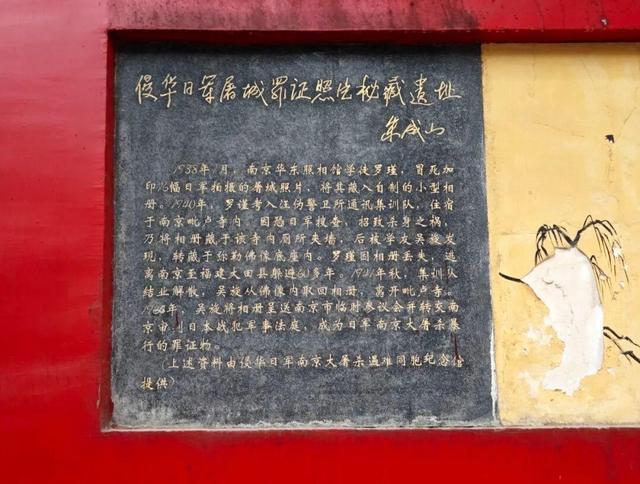 侵华日军屠城罪证照片秘藏遗址
朱成山
1938年1月，南京华东照相馆学徒罗瑾，冒死加
印16幅日军拍摄的屠城照片，将其藏入自制的小型相
册。1940年，罗谨考入汪伪警卫所通讯集训队，住宿
于南京毗卢寺内。因恐日军搜查，招致杀身之祸，
乃将相册藏于该寺内厕所夹墙，后被学友吴旋发
现，转藏于弥勒佛像底座内。罗瑾因相册丢失，逃
离南京至福建大田县躲避60多年。1941年秋，集训队
结业解散，吴旋从佛像内取回相册，离开毗卢寺。
年，吴旋将相册呈送南京市临时参议会并转交南
京审判日本战犯军事法庭，成为日军南京大屠杀暴
行的罪证物。
（上述资料由侵华日军南京大屠杀遇难同胞纪念馆
提供）